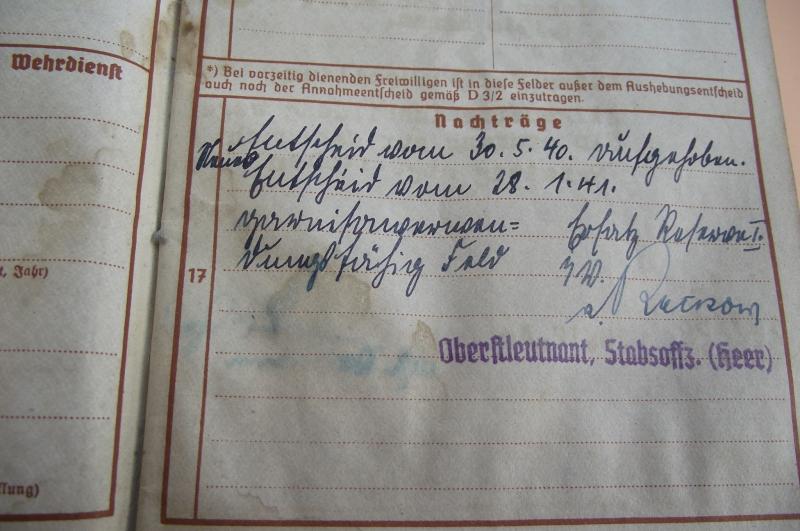 Wehrdienst
*) Bei vorzeitig dienenden Freiwilligen ist in diese Felder außer dem Aushebungsentscheid
auch noch der Annahmeentscheid gemäß D 3/2 einzutragen.
Nachträge
Entscheid vom 30.5.40. aufgehoben.
Neuer Entscheid vom 28.1.41.
garnisonverwen= Ersatz Reserve I.
dungsfähig Feld
17
Oberstleutnant, Stabsoffz. (Heer)
, Jahr)